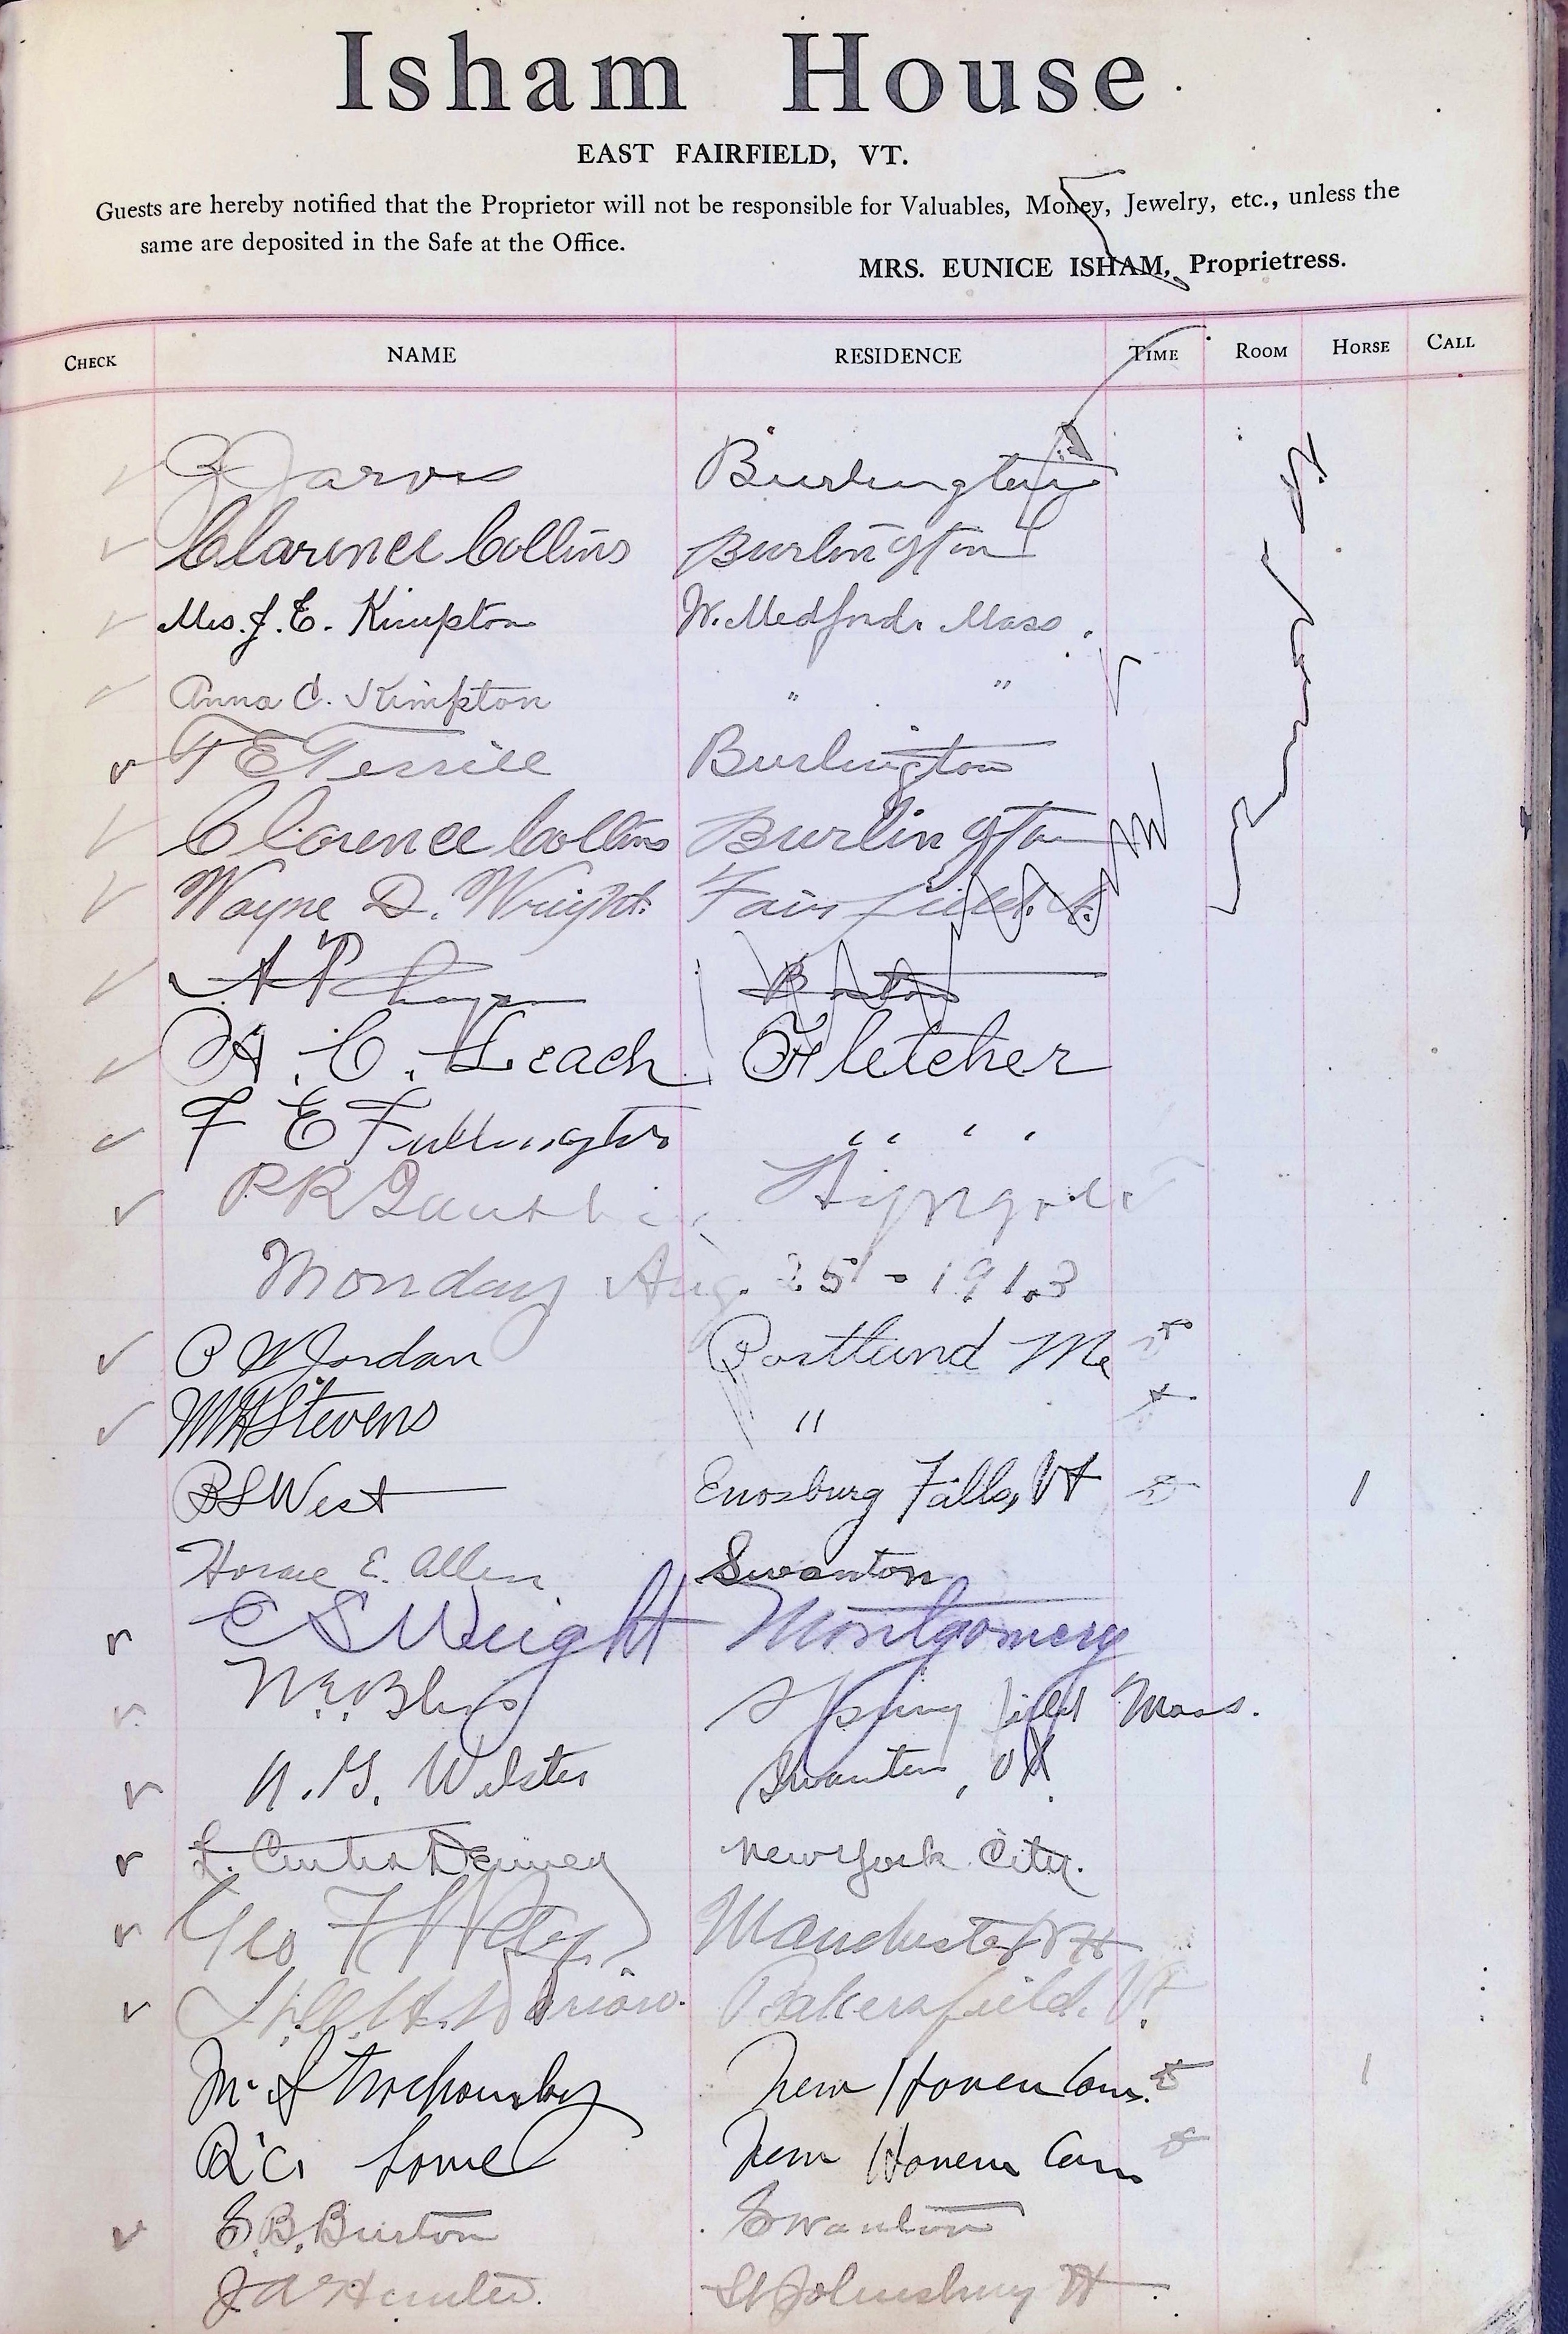 Isham House
EAST FAIRFIELD, VT.
Guests are hereby notified that the Proprietor will not be responsible for Valuables, Money, Jewelry, etc., unless the
same are deposited in the Safe at the Office.
MRS. EUNICE ISHAM, Proprietress.
CHECK NAME RESIDENCE TIME ROOM HORSE CALL
Jarvis Burlington
Clarence Collins Burlington
Mrs. J. E. Kimpton W. Medford. Mass.
Anna C. Kimpton " "
F E Terrill Burlington
Clarence Collins Burlington
Wayne D. Wright. Fairfield.
A P Boston
H. C. Leach Fletcher
F E Fullington " "
P R
Monday Aug. 25 - 1913
P W Jordan Portland Me
M H Stevens "
B S West Enosburg Falls, Vt 1
Horace E. Allen Swanton
C S Wright Montgomery
W. E. Bliss Springfield Mass.
N. G. Webster Swanton, Vt.
L. Curtis New York City.
Geo F Manchester N H
Bakersfield. Vt.
M. New Haven Conn. 1
R. C. New Haven Conn
E. B. Burton Swanton
J A Hunter St Johnsbury Vt